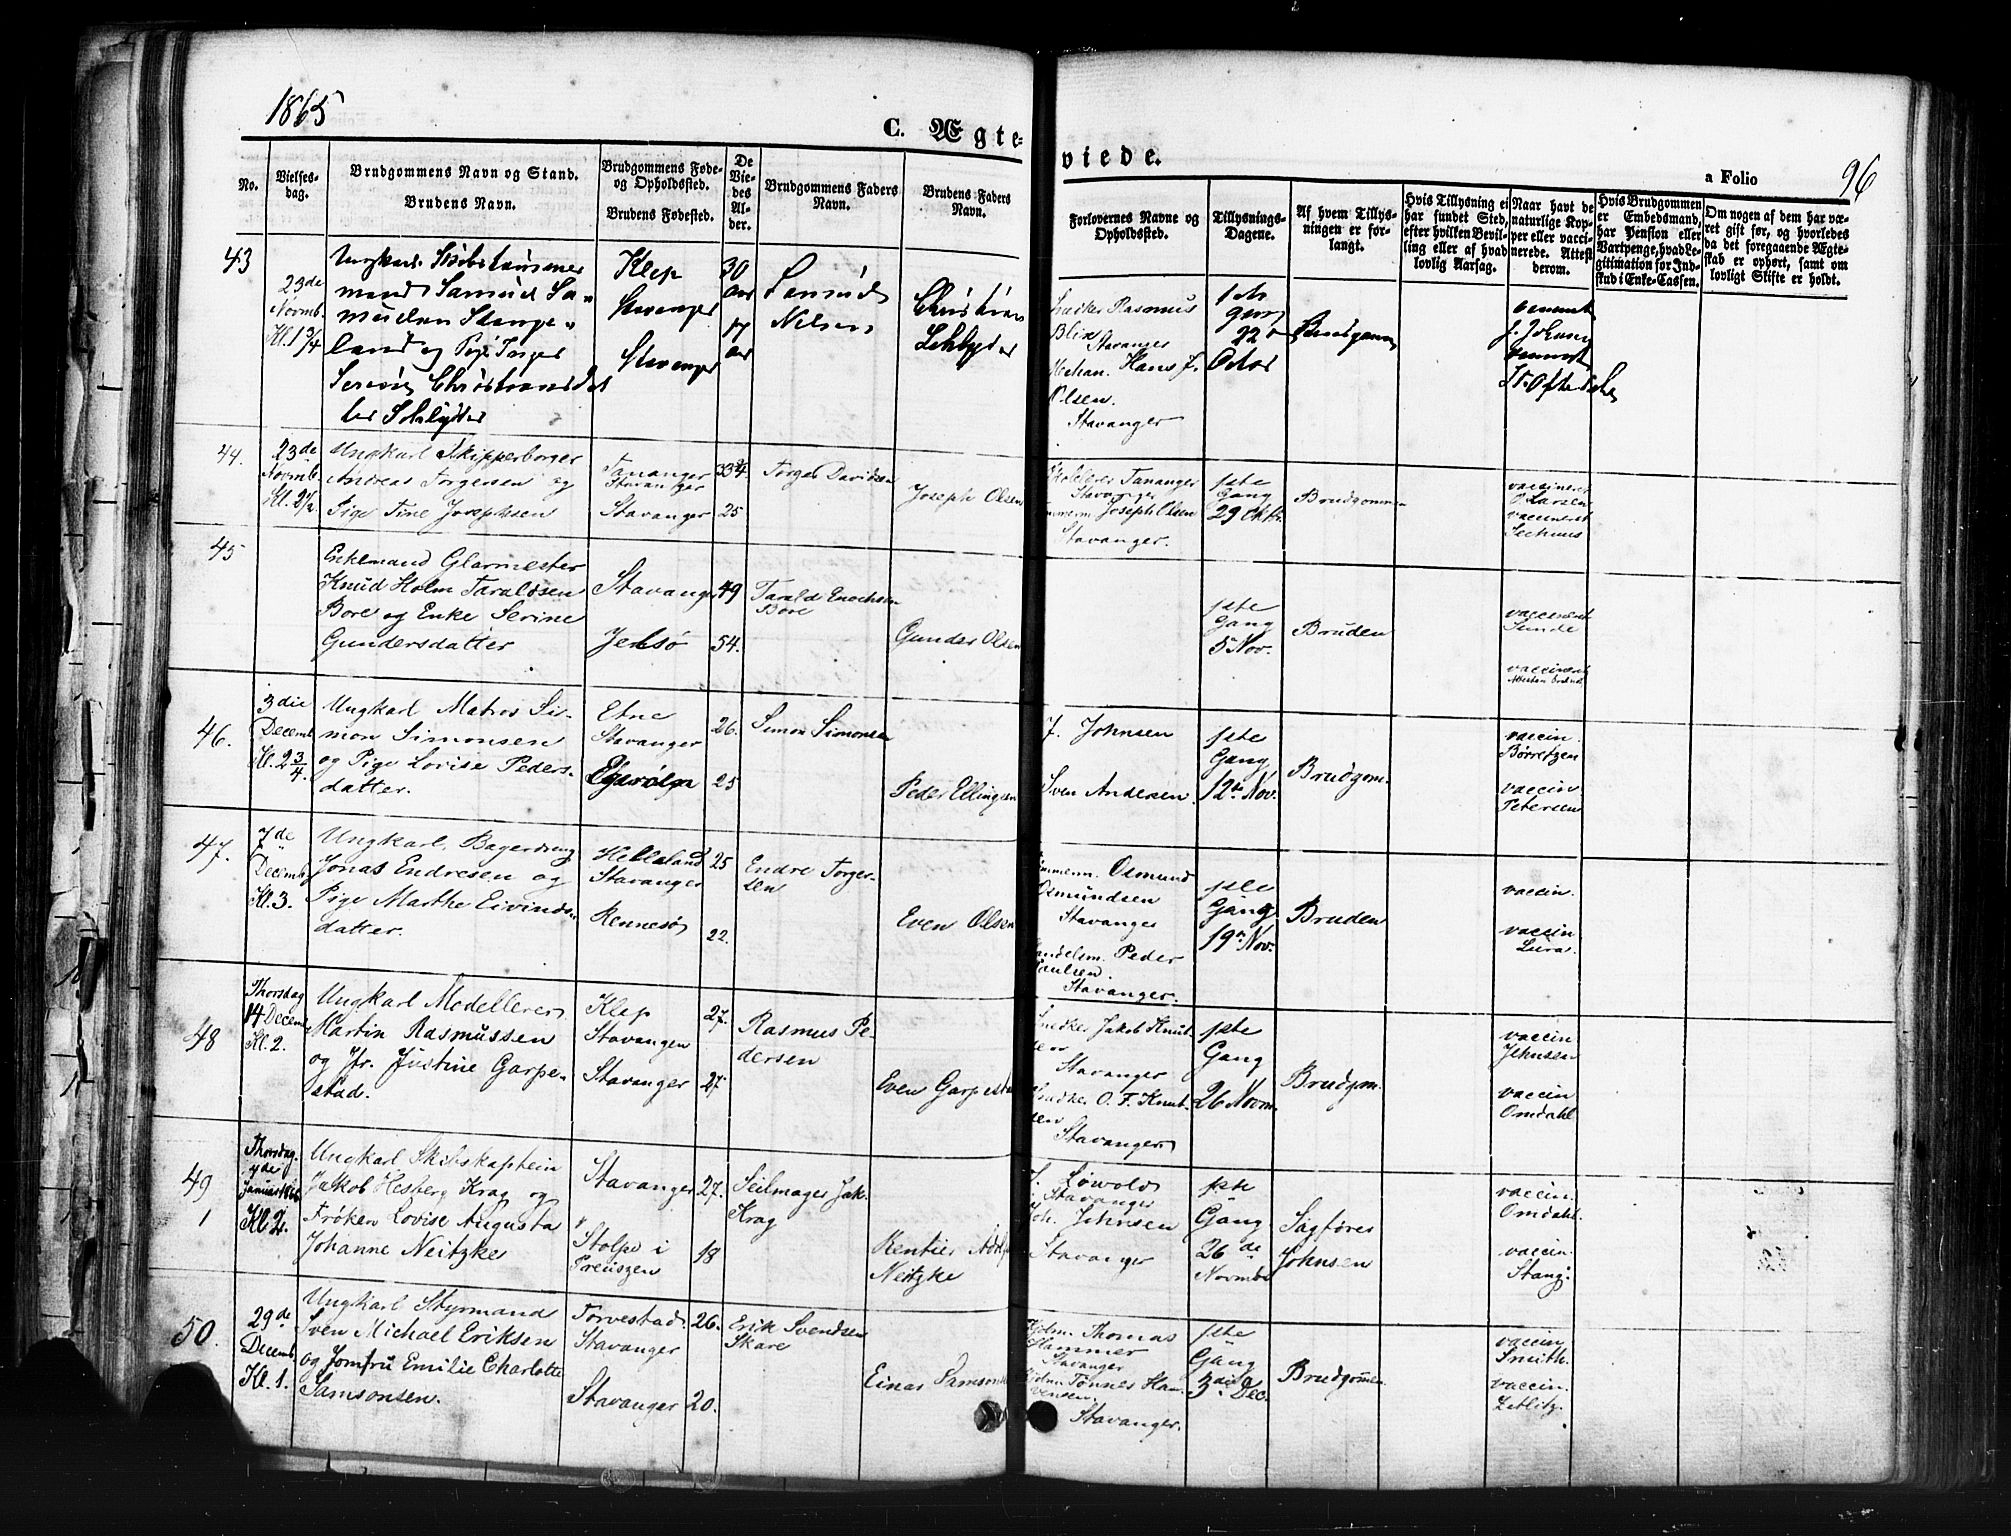 1865
C. Ægteviede.
a Folio
96
No.
Vielsesdag.
Brudgommens Navn og Stand.
Brudens Navn.
Brudgommens Føde- og Opholdssted.
Brudens Fødested.
De Viedes Alder.
Brudgommens Faders Navn.
Brudens Faders Navn.
Forlovernes Navne og Opholdssted.
Tillysnings-Dagene.
Af hvem Tillysningen er forlangt.
Hvis Tillysning ei har fundet Sted, efter hvilken Bevilling eller af hvad lovlig Aarsag.
Naar havt de naturlige Kopper eller vaccinerede. Attest derom.
Hvis Brudgommen er Embedsmand, har Pension eller Vartpenge, hvad Legitimation for Indskud i Enke-Cassen.
Om nogen af dem har været gift før, og hvorledes da det foregaaende Ægteskab er ophørt, samt om lovligt Skifte er holdt.
43
23de
Novmb.
Kl. 1 3/4
Ungkarl
mand Samuel Sa-
muelsen Stange-
land og Pige Inger
Klep
Stavanger
Stavanger
30
aar
17
aar
Samuel
Nielsen
Christian
Snedker Rasmus
Blix
Stavanger
Hans J.
Olsen.
Stavanger
1ste
Gang
22
Octor
Brudgommen
44.
23de
Novmb.
Kl. 2 1/2
Ungkarl Skipperborger
Andreas Torgersen og
Pige Tine Josephsen
Tananger
Stavanger
Stavanger
33 3/4
25
Torger Davidsen
Joseph Olsen
Tananger
Stavanger
Joseph Olsen
Stavanger.
1ste
Gang
29 Oktr.
Brudgommen
vaccineret
O Larsen
vaccineret
45
Enkemand Glarmester
Knud Holm Taraldsen
Bore og Enke Serine
Gundersdatter
Stavanger
Jelsø
49
54.
Tarald Enochsen
Bore
Gunder Olsen
1ste
Gang
5 Nov.
Bruden
vaccineret
Sunde
vaccineret
46.
3die
Decemb
Kl. 2 3/4
Ungkarl Matros Si-
mon Simonsen
og Pige Lovise Peders-
datter.
Etne
Stavanger
26.
25
Simon Simonsen
Peder Ellingsen
J. Johnsen
Sven Andersen
1ste
Gang
12te Nov.
Brudgom.
vaccin.
Børretzen
vaccin
Petersen
47.
7de
Decemb
Kl. 3.
Ungkarl, Bagerdreng
Jonas Endresen og
Pige Marthe Eivinds-
datter.
Helleland
Stavanger
Rennesø
25
22.
Endre Torger-
sen
Even Olsen
Tømmerm. Osmund
Osmundsen
Stavanger
Handelsm. Peder
Paulsen.
Stavanger.
1ste
Gang
19de Nov.
Bruden
vaccin.
vaccin
Lura.
48
Thorsdag
14 Decemb
Kl. 2.
Ungkarl Modellerer
Martin Rasmussen
og Jfr. Justine Garpe-
stad.
Klep
Stavanger
Stavanger
27.
27.
Rasmus Pe-
dersen
Even Garpestad
Snedker Jakob Knut-
sen
Stavanger
Snedker O. F. Knut-
sen
Stavanger
1ste
Gang
26 Novm.
Brudgom.
vaccin
Johnsen
vaccin
Omdahl
49
1
Thorsdag
4de
Januar 1866
Kl. 2.
Ungkarl Skibskaptein
Jakob Hesberg Krag og
Frøken Lovise Augusta
Johanne Neitzke
Stavanger
Stolpe i
Preuszen
27.
18
Seilmager Jak.
Krag
Rentier Adolph
Neitzke
Løwold
Stavanger
Joh. Johnsen
Stavanger
1ste
Gang
26de
Novmbr
Sagfører
Johnsen
vaccin.
Omdahl.
vaccin.
Stang.
50.
29de
Decemb
Kl. 1.
Ungkarl Styrmand
Sven Michael Eriksen
og Jomfru Emilie Charlotte
Samsonsen.
Torvestad.
Stavanger
Stavanger
26.
20.
Erik Svendsen
Skare
Einar Samsonsen
Thomas
Hammer
Stavanger
Tønnes Hau-
vensen
Stavanger.
1ste
Gang
3die Dec.
Brudgommen
vaccin
Smith.
vaccin.
Zetlitz.